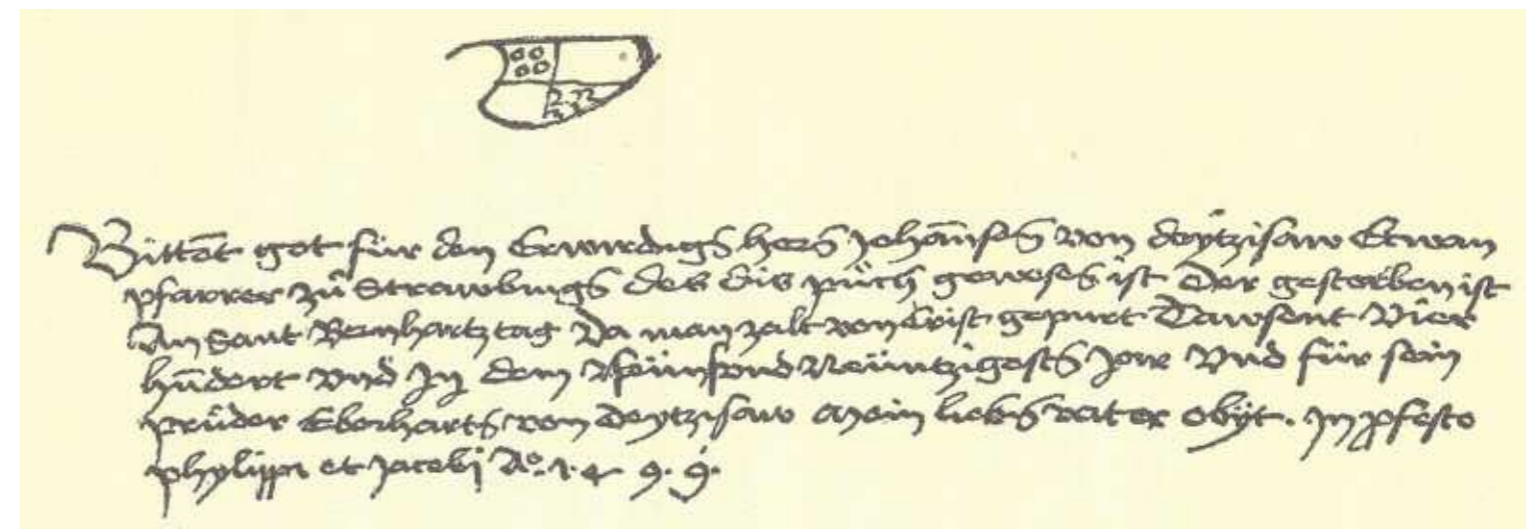 Bittet got für den Erwirdigen hern Johannsen von deytzisaw Etwan
pfarrer zů Strawbingen des dis půch gewesen ist Der gestorben ist
An Sant Bernhartz tag Da man zalt von Crist gepurt Tawsent Vier
hundert vnd In dem Neüntzigesten Jar Vnd für sein
průder Eberharten von deytzisaw mein lieben vater obÿt. In pfesto
phylippi et Jacobi Ao. 1. 4 9. 9.